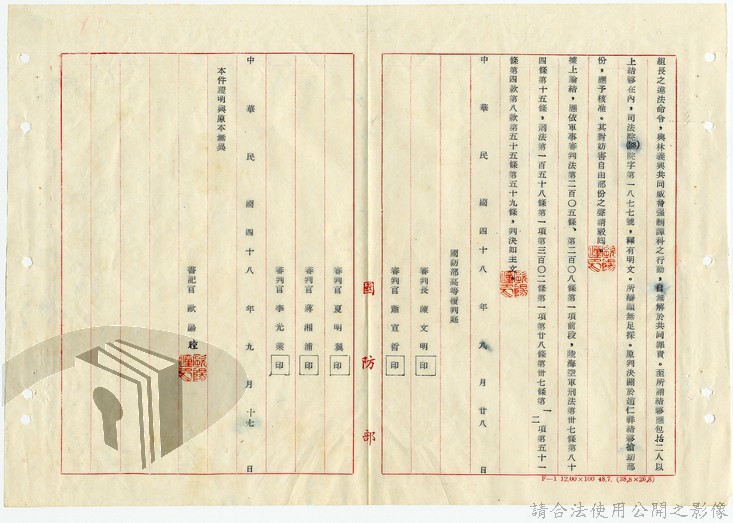 組長之違法命令,與林義與共同威脅強制譯科之行動,自無解於共同罪責。至所謂結夥應包括二人以
上結夥在內,司法院(28)院字第一八七七號,釋有明文。所辯顯無足採。原判決關於趙仁祥結夥搶劫部
份,應予核准。其對妨害自由部份之聲請駁回。
據上論結,應依軍事審判法第二百〇五條、第二百〇八條第一項前段,陸海空軍刑法第廿七條第八十
四條第十五條,刑法第一百五十八條第一項第三百〇二條第一項第廿八條第卅七條第一二項第五十一
條第四款第八款第五十五條第五十九條,判決如主文。
中華民國四十八年九月廿八日
國防部高等覆判庭
審判長 陳文明 印
審判官 蕭宣哲 印
國防部
審判官 夏明翼 印
審判官 蔣湘浦 印
審判官 李光業 印
中華民國四十八年九月十七日
本件證明與原本無異
書記官 歐陽
F—1 12,00×100 48.7. (38,8×26,8)
請合法使用公開之影像